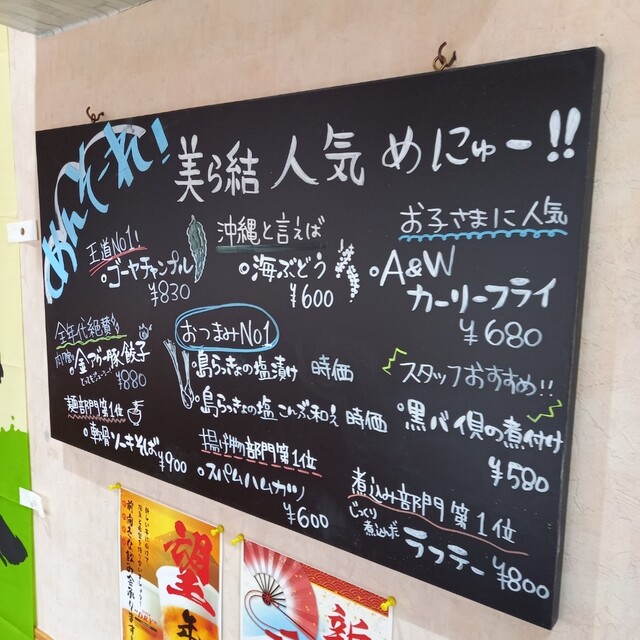 めんそーれ!
美ら結 人気 めにゅー!!
王道No1!
ゴーヤチャンプル
¥830
沖縄と言えば
海ぶどう
¥600
お子さまに人気
A&W
カーリーフライ
¥680
全年代絶賛
金アグー豚餃子
¥880
おつまみNo1
島らっきょの塩漬け 時価
島らっきょの塩こんぶ和え 時価
スタッフおすすめ!!
黒バイ貝の煮付け
¥580
麺部門第1位
軟骨ソーキそば
¥900
揚げ物部門第1位
スパムハムカツ
¥600
煮込み部門第1位
じっくり
煮込んだ
ラフテー
¥800
望
年
新